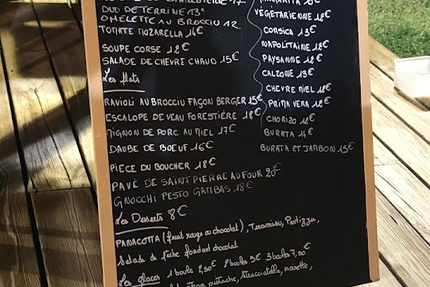 DUO DE TERRINE 13€
OMELETTE AU BROCCIU 12
TOMATE MOZARELLA 14€
SOUPE CORSE 12€
SALADE DE CHEVRE CHAUD 15€
Les Plats
RAVIOLI AU BROCCIU FAÇON BERGER 15€
ESCALOPE DE VEAU FORESTIÈRE 18€
MIGNON DE PORC AU MIEL 17€
DAUBE DE BOEUF 16€
PIÈCE DU BOUCHER 18€
PAVÉ DE SAINT PIERRE AU FOUR 20€
GNOCCHI PESTO GAMBAS 18€
Les Desserts 8€
PANACOTTA (fruit rouge ou chocolat), Tiramisu,
Salade de fondant chocolat
Les glaces 1 boule 2 boules 5€ 3 boules 7,00€
pistache, stracciatella, noisette,
VÉGÉTARIENNE 12€
CORSICA 13€
NAPOLITAINE 12€
PAYSANNE 12€
CALZONE 13€
CHEVRE MIEL 12€
PRIMA VERA 12€
CHORIZO 12€
BURATA 14€
BURATA ET JAMBON 15€